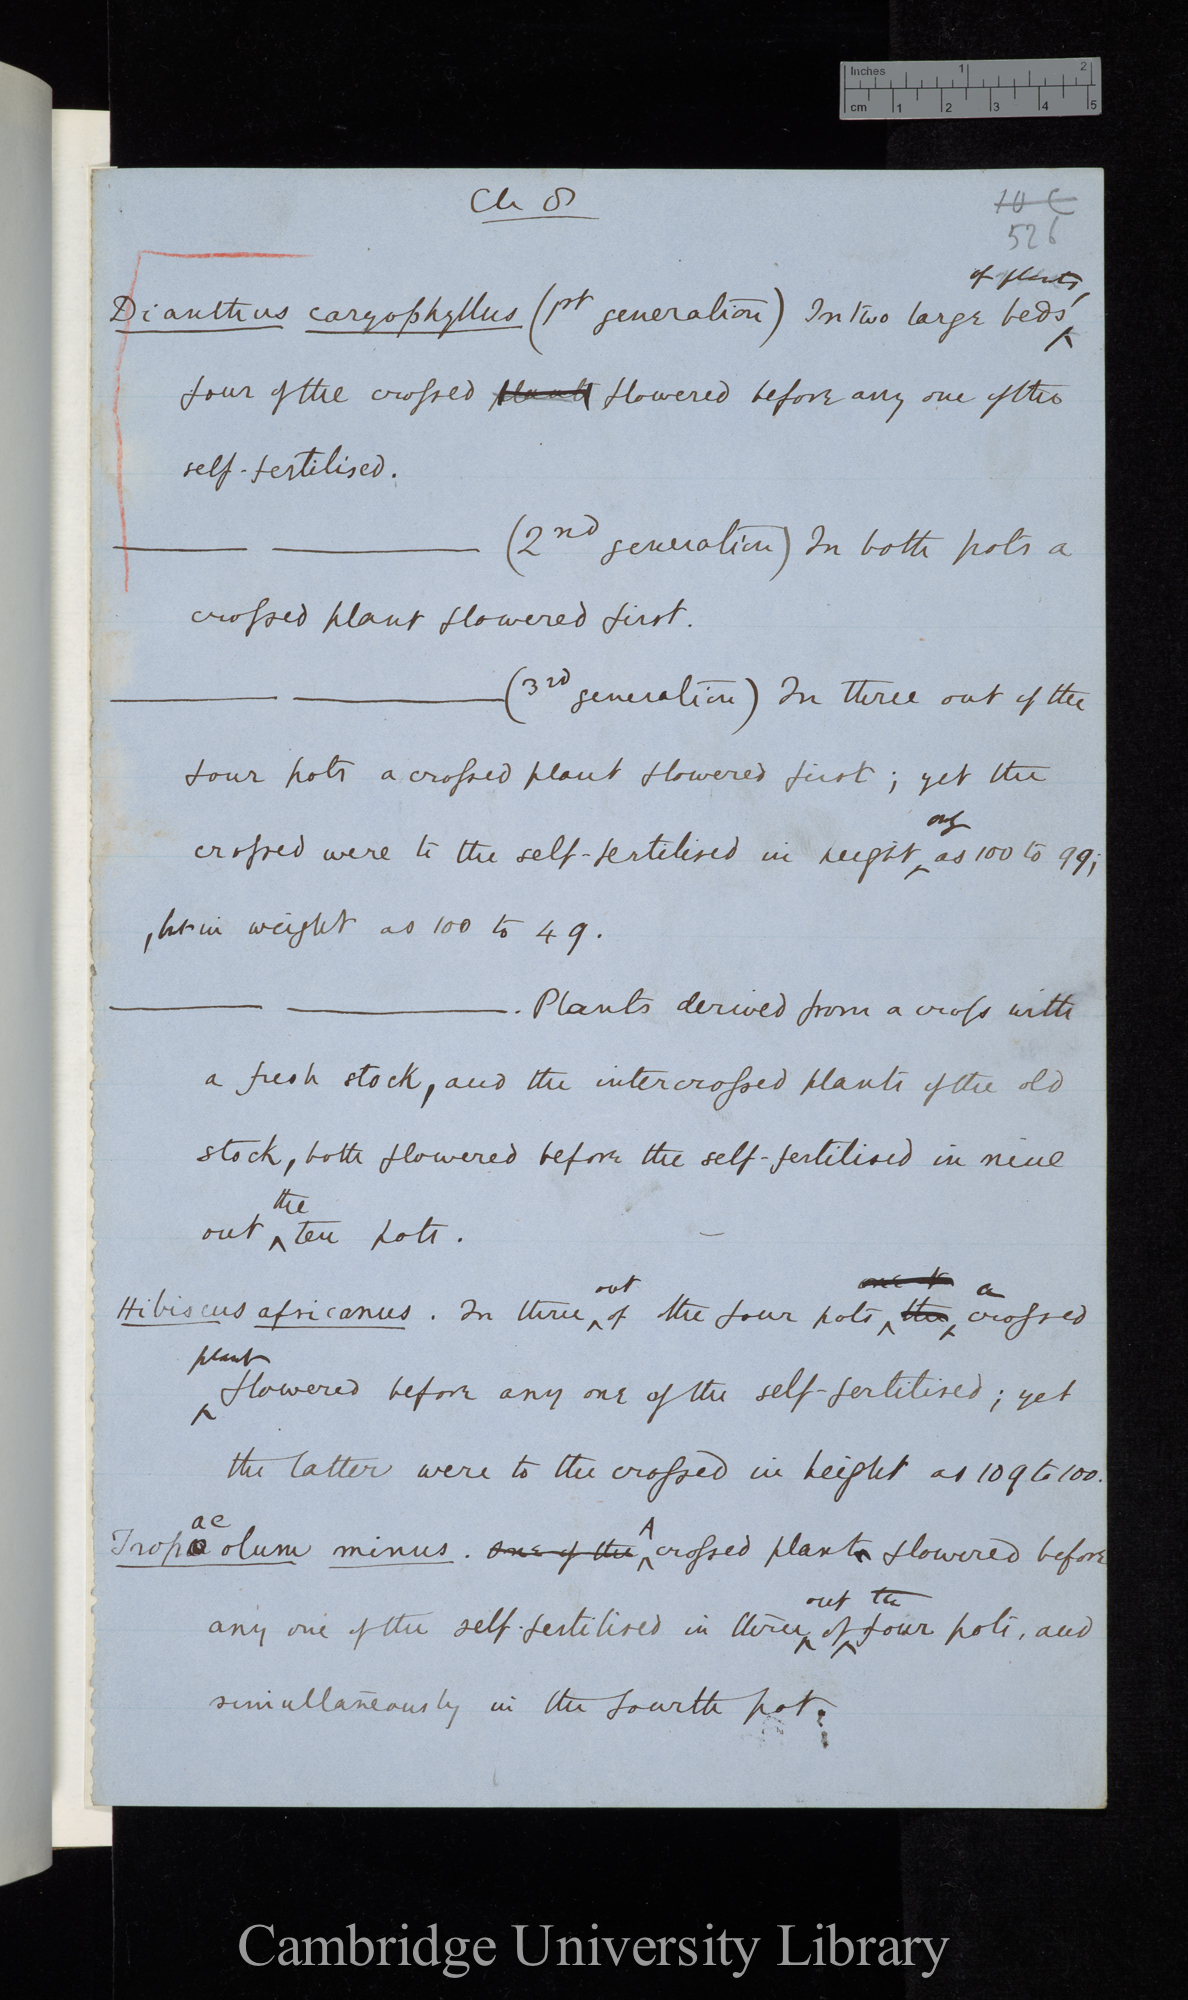 Inches 1 2
cm 1 2 3 4 5
Ch 8
10 C
526
of plants,
Dianthus caryophyllus (1st generation) In two large beds,
four of the crossed plants flowered before any one of the
self-fertilised.
(2nd generation) In both pots a
crossed plant flowered first.
(3rd generation) In three out of the
four pots a crossed plant flowered first; yet the
only
crossed were to the self-fertilised in height as 100 to 99;
but in weight as 100 to 49.
. Plants derived from a cross with
a fresh stock, and the intercrossed plants of the old
stock, both flowered before the self-fertilised in nine
the
out ten pots.
out a
Hibiscus africanus. In three of the four pots the crossed
plant
flowered before any one of the self-fertilised; yet
the latter were to the crossed in height as 109 to 100.
ae A
Tropaolum minus. One of the crossed plant flowered before
out the
any one of the self-fertilised in three of four pots, and
simultaneously in the fourth pot.
Cambridge University Library